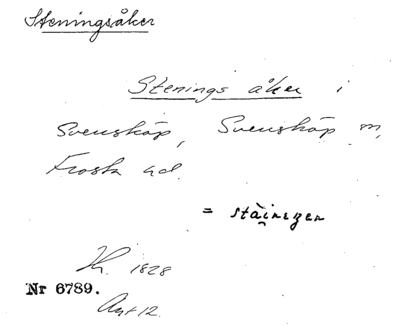 Steningsåker
Stenings åker i
Svensköp, Svensköp sn,
Frosta hd.
= stàinezen
Kr. 1828
Nr 6789.
Avt 12.